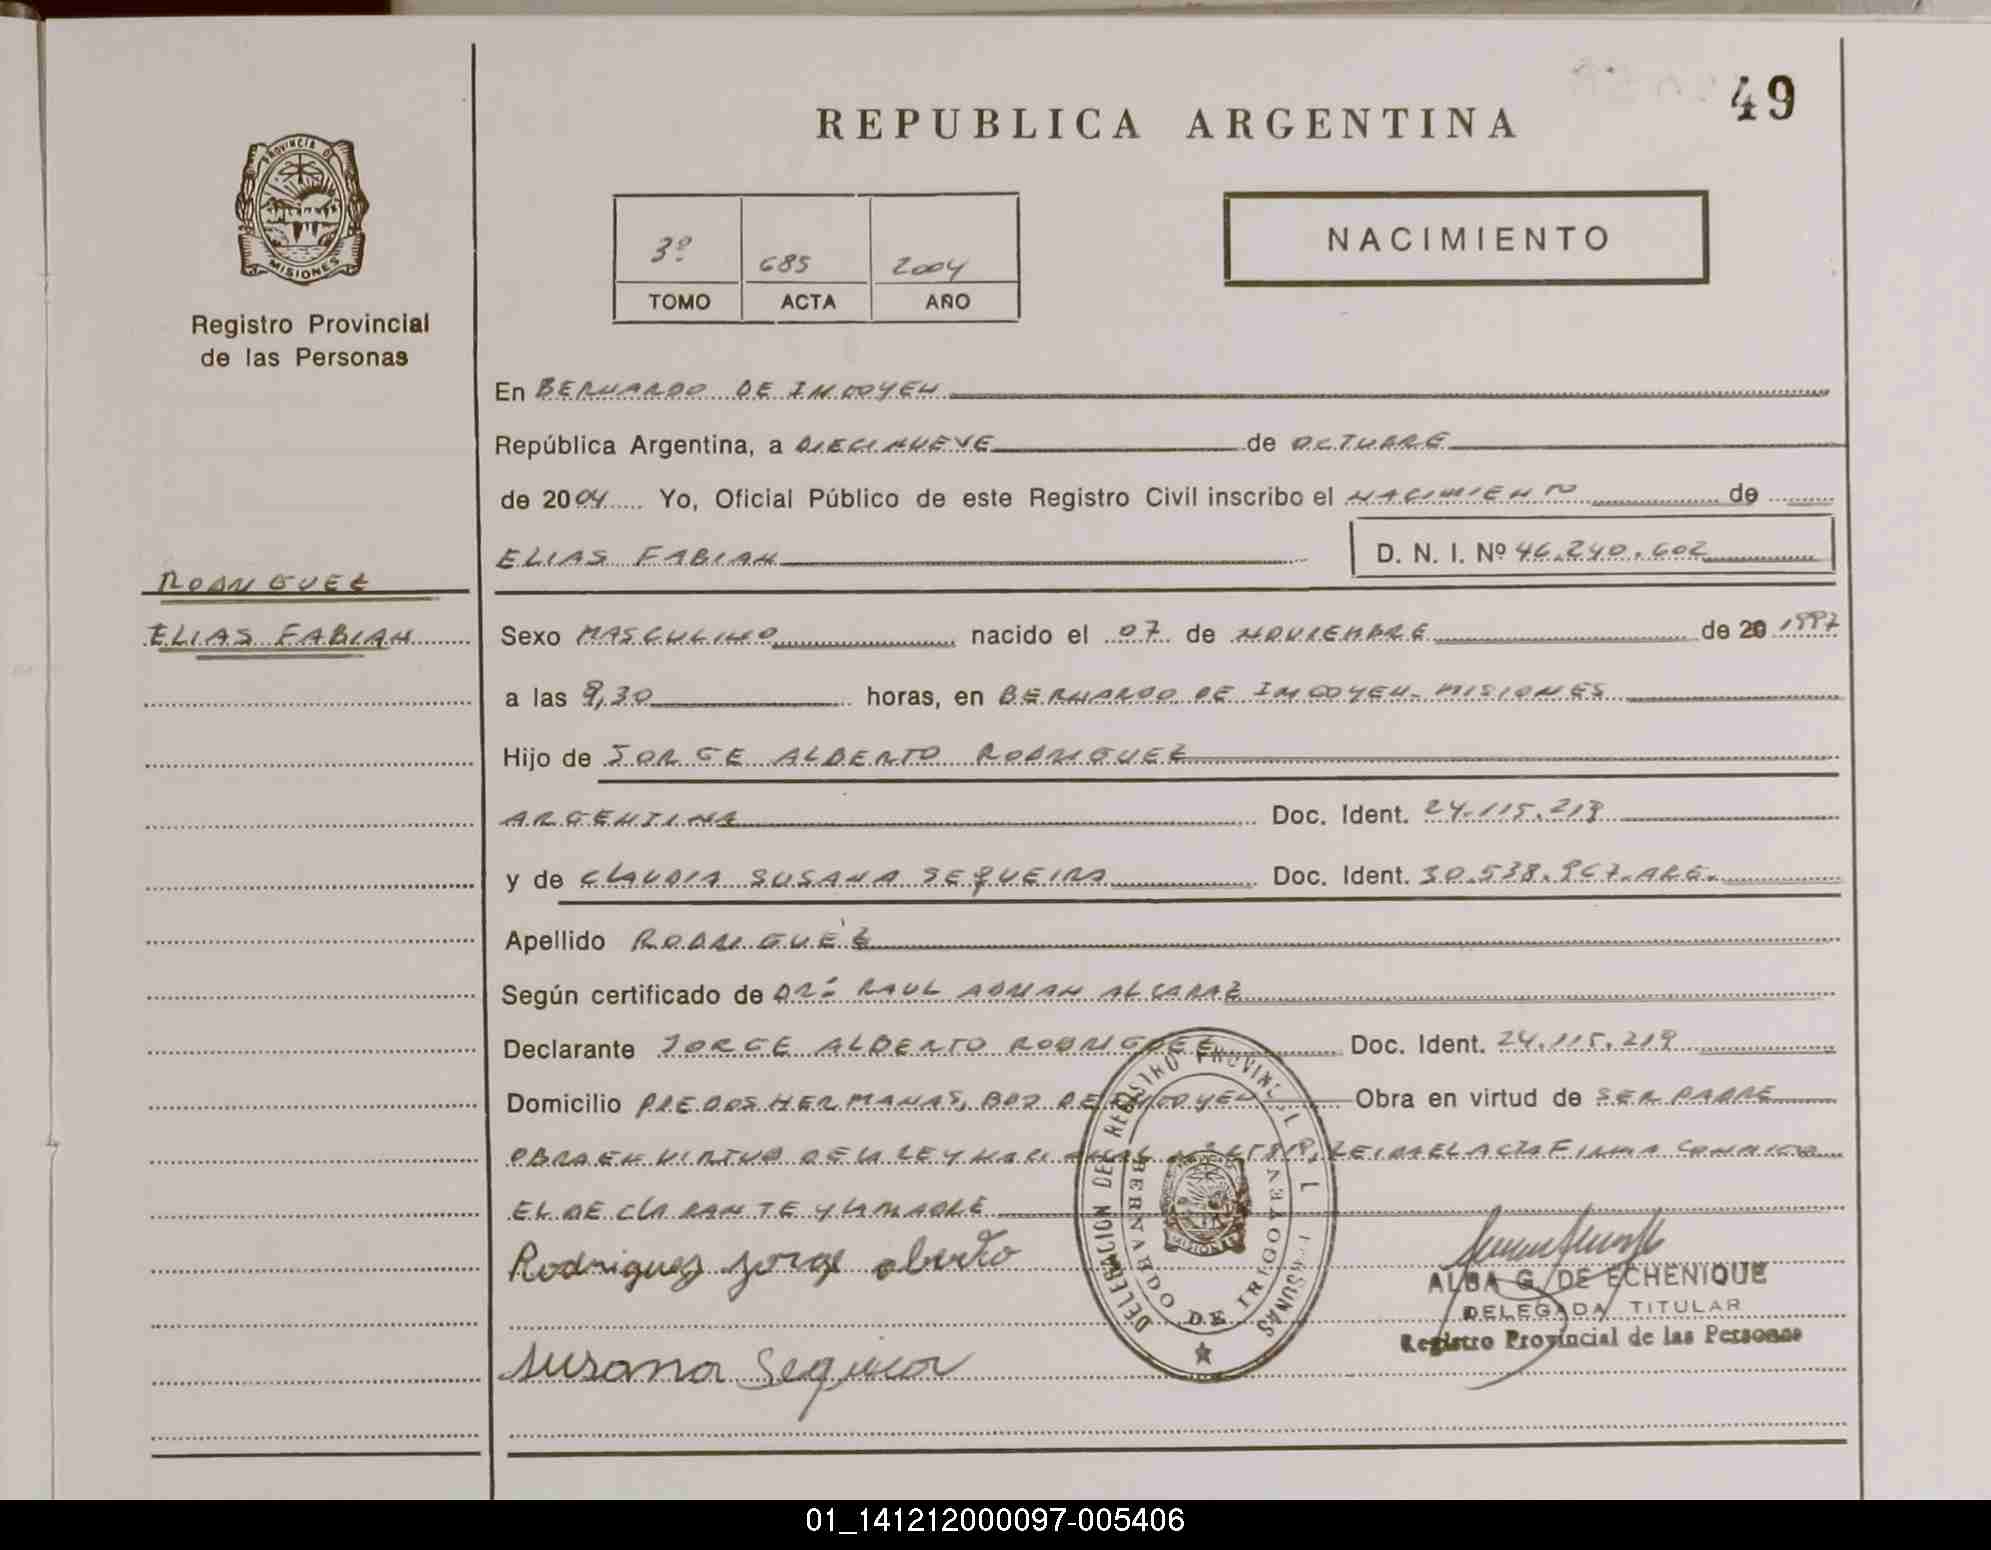 49
REPUBLICA ARGENTINA
PROVINCIA DE
MISIONES
Registro Provincial
de las Personas
3º 685 2004
TOMO ACTA AÑO
NACIMIENTO
En BERNARDO DE IRIGOYEN
República Argentina, a DIECINUEVE de OCTUBRE
de 2004 Yo, Oficial Público de este Registro Civil inscribo el NACIMIENTO de
ELIAS FABIAN D. N. I. Nº 46.240.602
RODRIGUEZ
ELIAS FABIAN
Sexo MASCULINO nacido el 07 de NOVIEMBRE de 20 1997
a las 9,30 horas, en BERNARDO DE IRIGOYEN-MISIONES
Hijo de JORGE ALBERTO RODRIGUEZ
ARGENTINA Doc. Ident. 24.115.219
y de CLAUDIA SUSANA SEQUEIRA Doc. Ident. 30.538.967.ARG.
Apellido RODRIGUEZ
Según certificado de DR. RAUL ADRIAN ALCARAZ
Declarante JORGE ALBERTO RODRIGUEZ Doc. Ident. 24.115.219
Domicilio PJE DOS HERMANAS, BDO DE IRIGOYEN Obra en virtud de SER PADRE
OBRA EN VIRTUD DE LA LEY NACIONAL LEIDA EL ACTA FIRMA CONMIGO
EL DECLARANTE Y LA MADRE
Rodriguez Jorge alberto
Susana Sequeira
DELEGACION DEL REGISTRO PROVINCIAL PERSONAS
BERNARDO DE IRIGOYEN
MISIONES
ALBA G. DE ECHENIQUE
DELEGADA TITULAR
Registro Provincial de las Personas
01_141212000097-005406